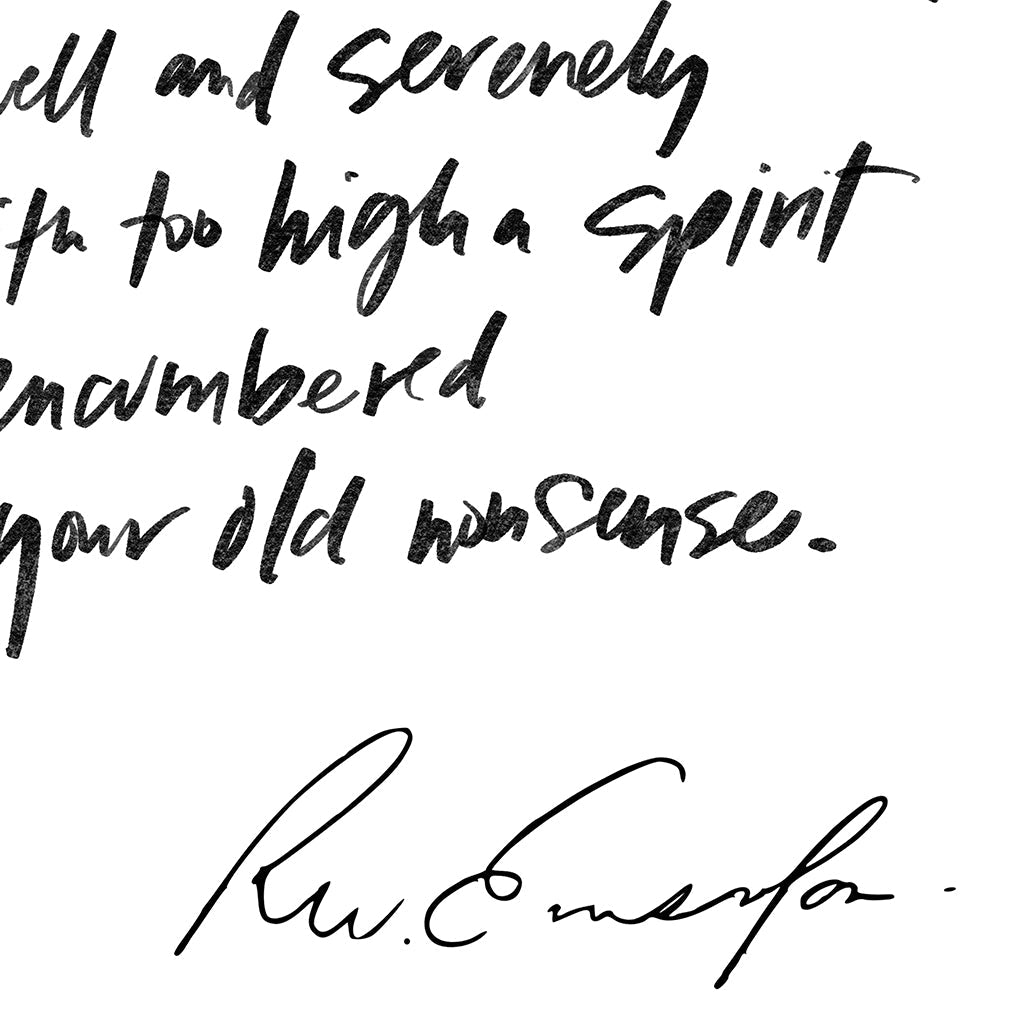 ell and serenely
ith too high a spirit
encumbered
your old nonsense.
R.W. Emerson.